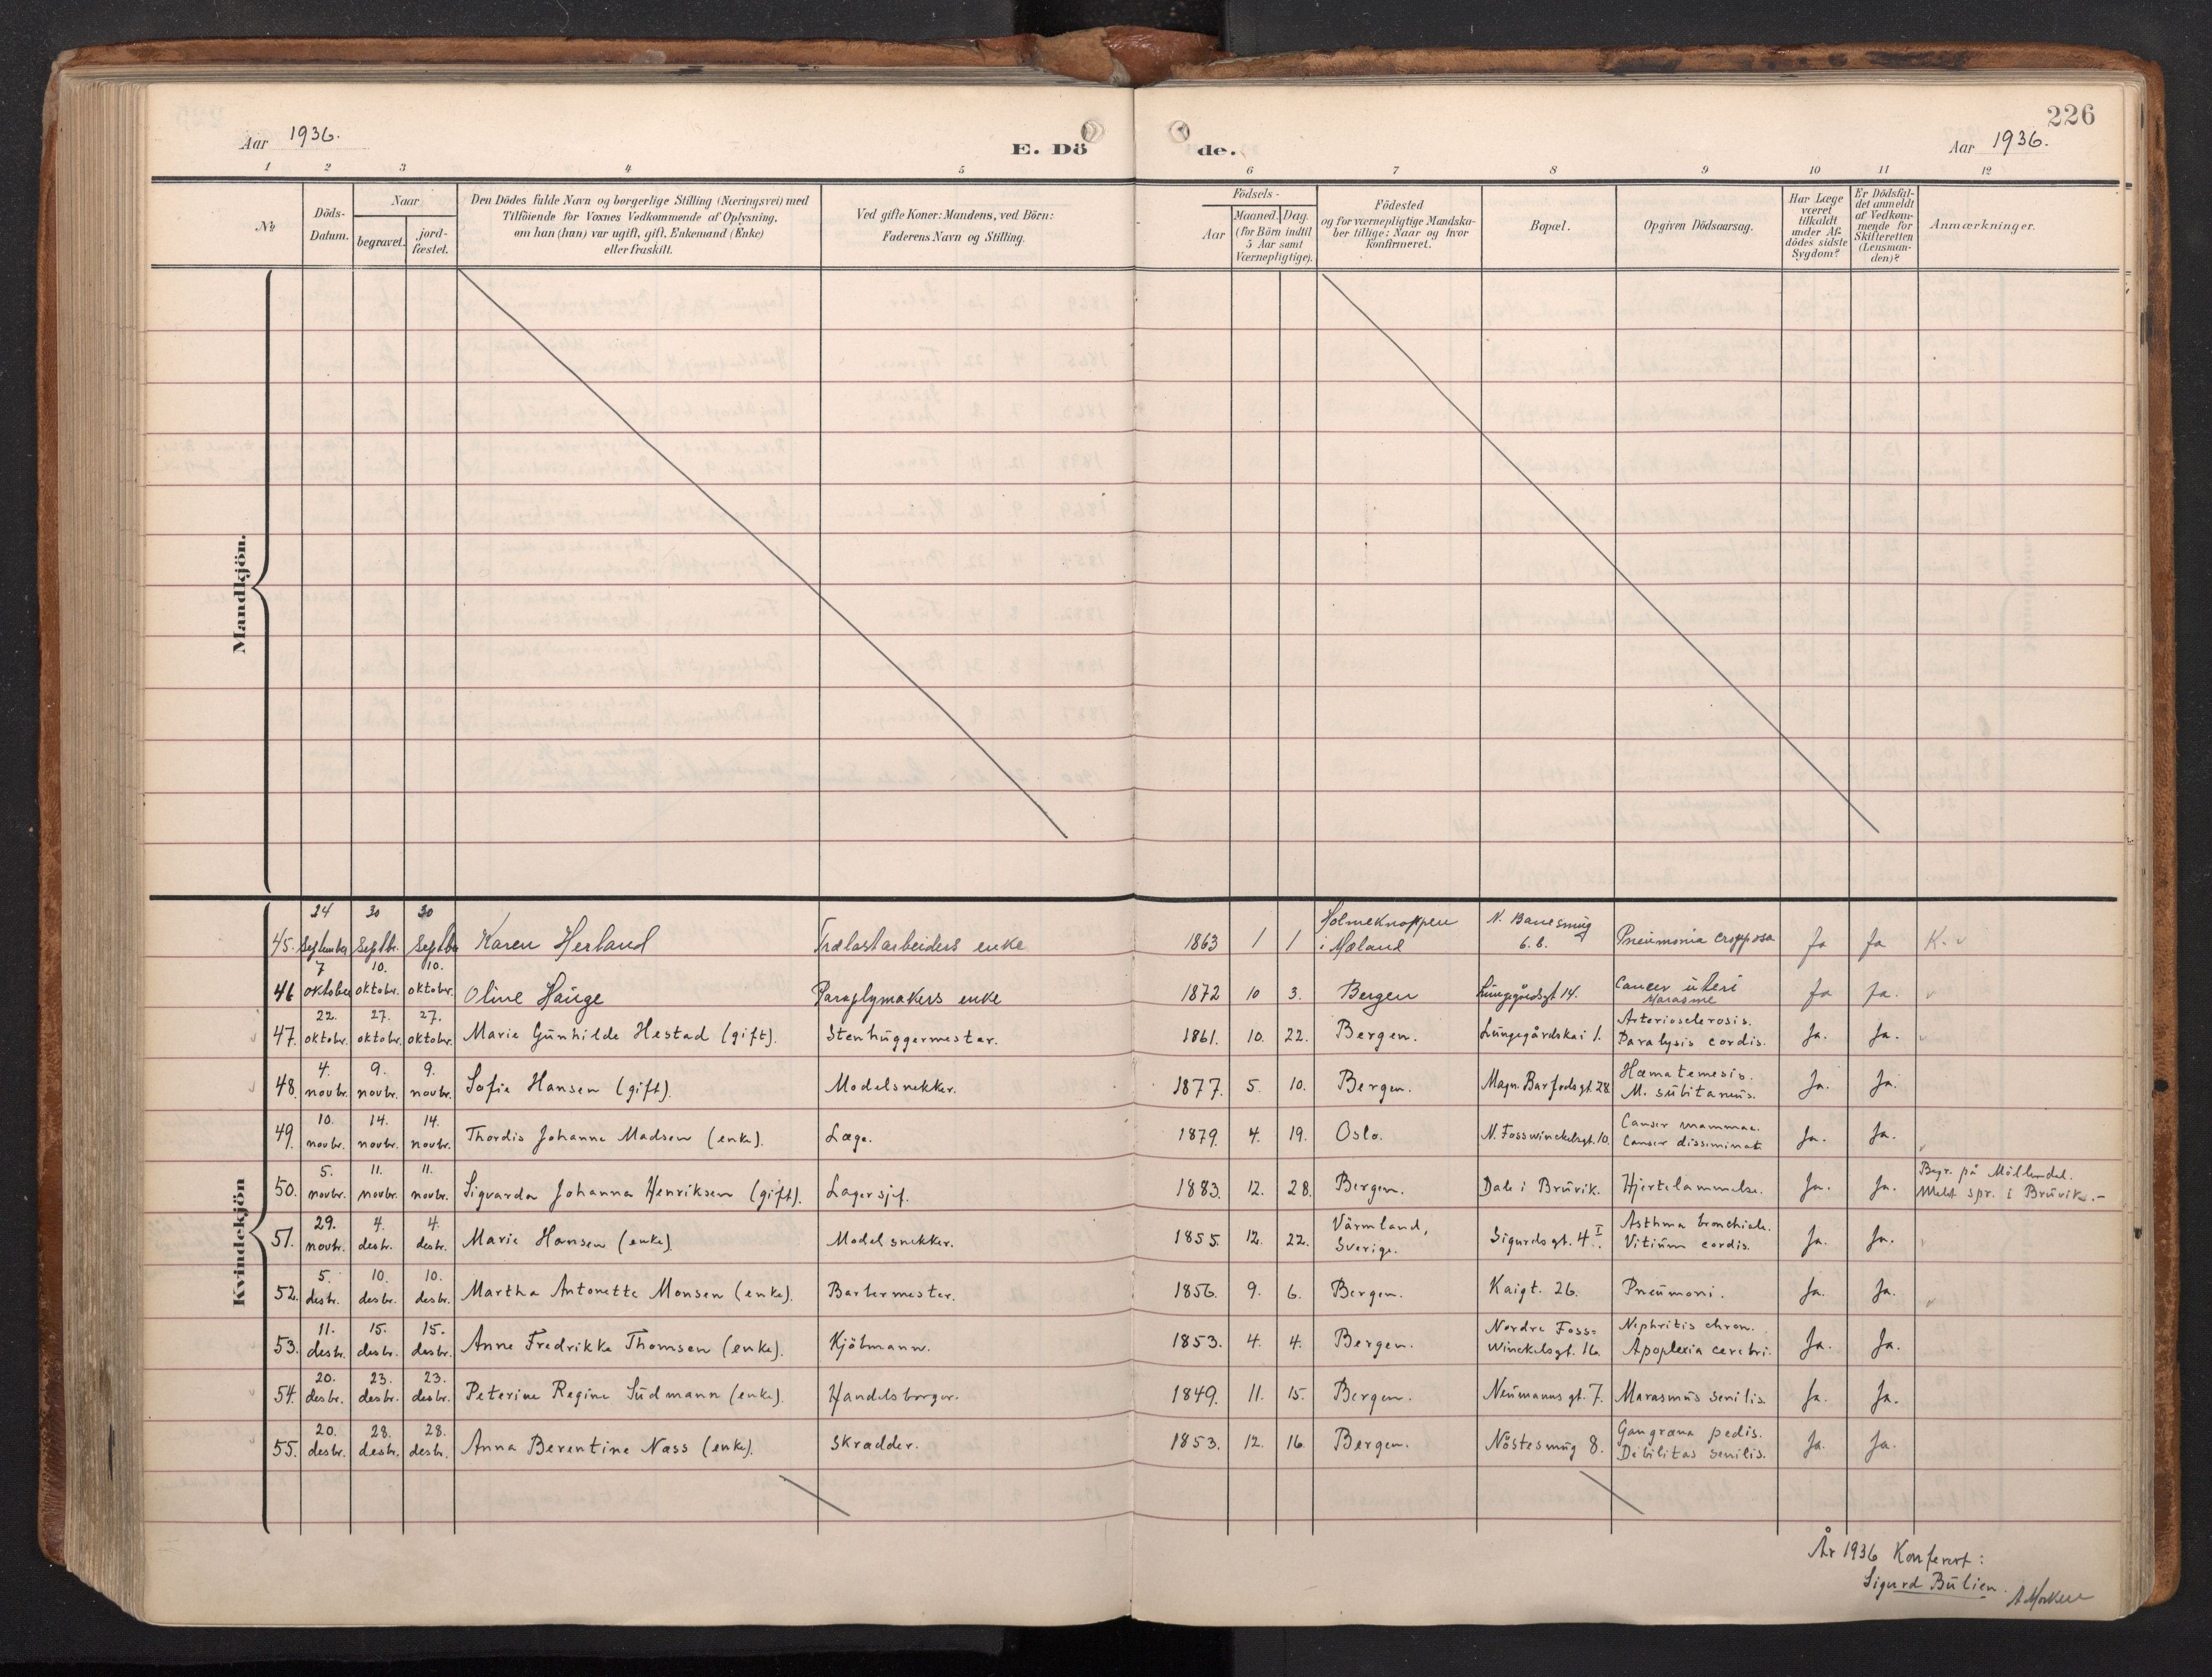 226
Aar 1936.
E. Dö
de.
Aar 1936.
1 2 3 4 5 6 7 8 9 10 11 12
No
Döds-
Datum.
Naar
begravet.
jord-
fæstet.
Den Dödes fulde Navn og borgerlige Stilling (Næringsvei) med
Tilföiende for Voxnes Vedkommende af Oplysning,
om han (hun) var ugift, gift, Enkemand (Enke)
eller fraskilt.
Ved gifte Koner: Mandens, ved Börn:
Faderens Navn og Stilling.
Födsels-
Aar
Maaned. Dag.
(for Börn indtil
5 Aar samt
Værnepligtige).
Födested
og for værnepligtige Mandska-
ber tillige: Naar og hvor
konfirmeret.
Bopæl.
Opgiven Dödsaarsag.
Har Læge
været
tilkaldt
under Af-
dödes sidste
Sygdom?
Er Dödsfal-
det anmeldt
af Vedkom-
mende for
Skifteretten
(Lensman-
den)?
Anmærkninger.
Mandkjön.
Kvindekjön
24 30 30
45. September Septbr. Septbr Karen Herland Trælastarbeiders enke 1863 1 1 Holmeknappen i Mæland N. Banesmug 6.b. Pneumonia cropposa Ja Ja K. v
7 10. 10.
46 oktober oktober. oktober. Oline Hauge Paraplymakers enke 1872 10 3. Bergen Lungegårdsgt 14. Cancer uteri Marasme Ja Ja. v
22. 27. 27.
47. oktobr. oktobr. oktobr. Marie Gunhilde Hestad (gift). Stenhuggermester. 1861. 10. 22. Bergen. Lungegårdskai 1. Arteriosclerosis. Paralysis cordis. Ja. Ja. v
4. 9. 9.
48. novbr. novbr. novbr. Sofie Hansen (gift). Modelsnekker. 1877. 5. 10. Bergen. Magn. Barfodsgt. 28. Hæmatemesis. M. subitaneus. Ja. Ja.
10. 14. 14.
49. novbr. novbr. novbr. Thordis Johanne Madsen (enke). Læge. 1879. 4. 19. Oslo. N. Fosswinckelsgt. 10. Canser mammae. Canser disseminat. Ja. Ja. v
5. 11. 11.
50. novbr. novbr. novbr. Sigvarda Johanna Henriksen (gift). Lagersjef. 1883. 12. 28. Bergen. Dale i Bruvik. Hjertelammelse. Ja. Ja. Begr. på Möllendal. Meldt spr. i Bruvik.-
29. 4. 4.
51. novbr. desbr. desbr. Marie Hansen (enke) Modelsnekker. 1855. 12. 22. Värmland, Sverige. Sigurdsgt. 4 I. Asthma bronchiale. Vitium cordis. Ja. Ja. v
5. 10. 10.
52. desbr. desbr. desbr. Martha Antonette Monsen (enke). Barbermester. 1856. 9. 6. Bergen. Kaigt. 26. Pneumoni. Ja. Ja. v
11. 15. 15.
53. desbr. desbr. desbr. Anne Fredrikke Thomsen (enke). Kjöbmann. 1853. 4. 4. Bergen. Nordre Foss=Winckelsgt. 16. Nephritis chron. Apoplexia cerebri. Ja. Ja.
20. 23. 23.
54. desbr. desbr. desbr. Peterine Regine Sudmann (enke) Handelsborger. 1849. 11. 15. Bergen. Neumanns gt. 7. Marasmus senilis. Ja. Ja.
20. 28. 28.
55. desbr. desbr. desbr. Anna Berentine Næss (enke). Skrædder. 1853. 12. 16. Bergen. Nöstesmug 8. Gangræna pedis. Debilitas senilis. Ja. Ja.
År 1936 Konferert:
Sigurd Bulien.